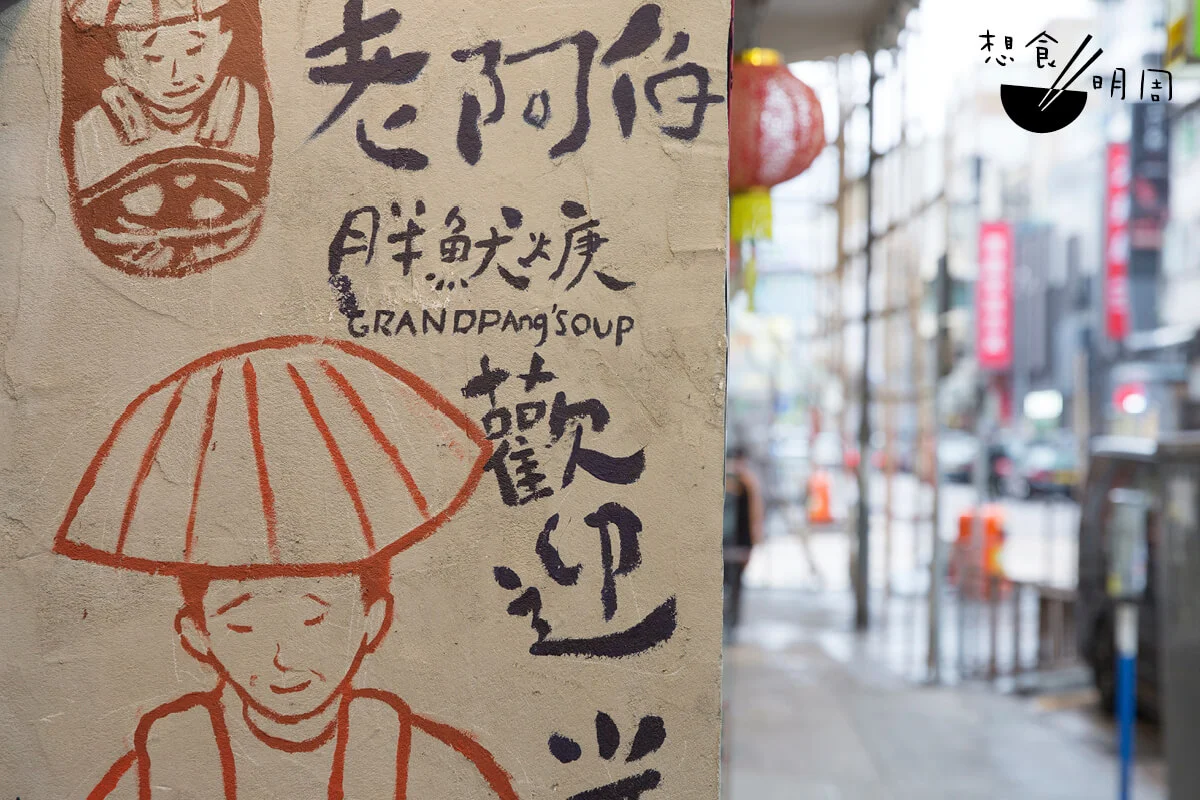 老阿伯
胖魷焿
GRANDPAng'SOUP
歡迎
想食明周